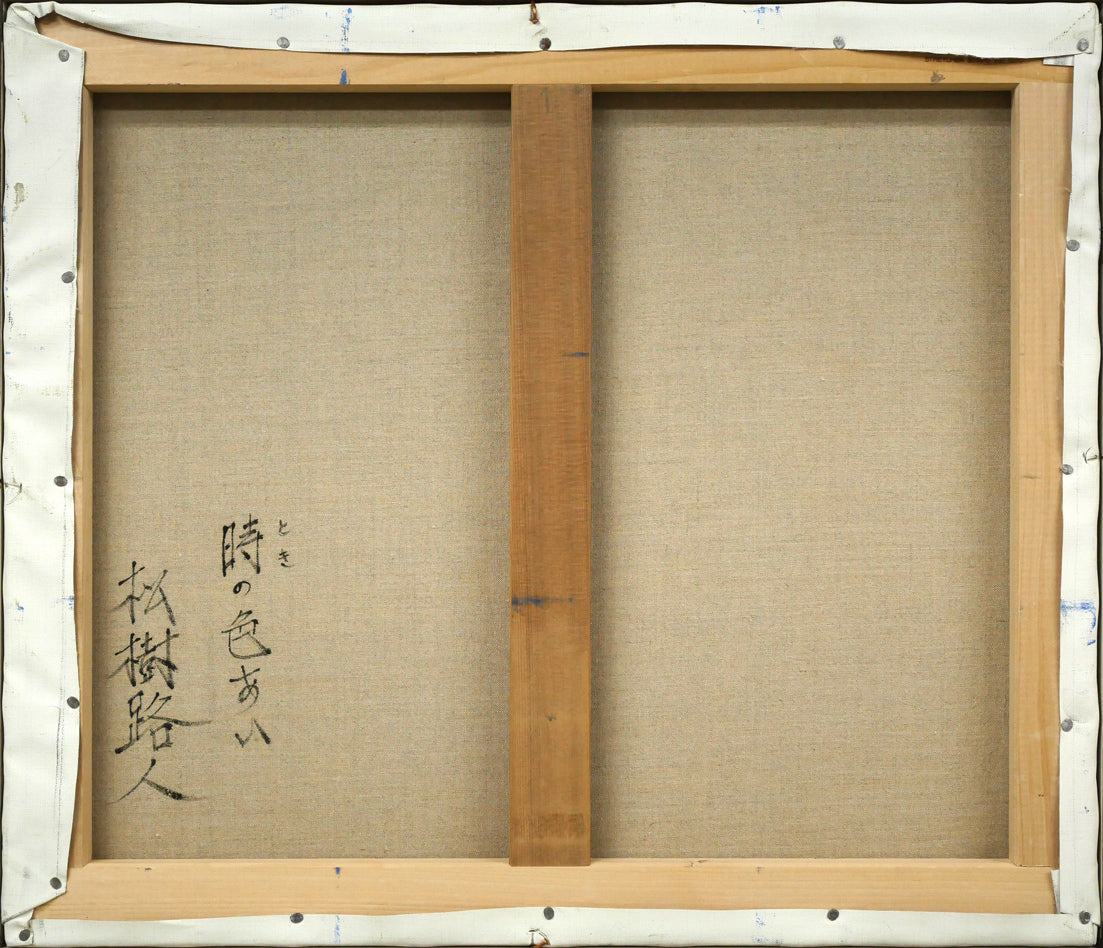 とき
時の色あい
松樹路人